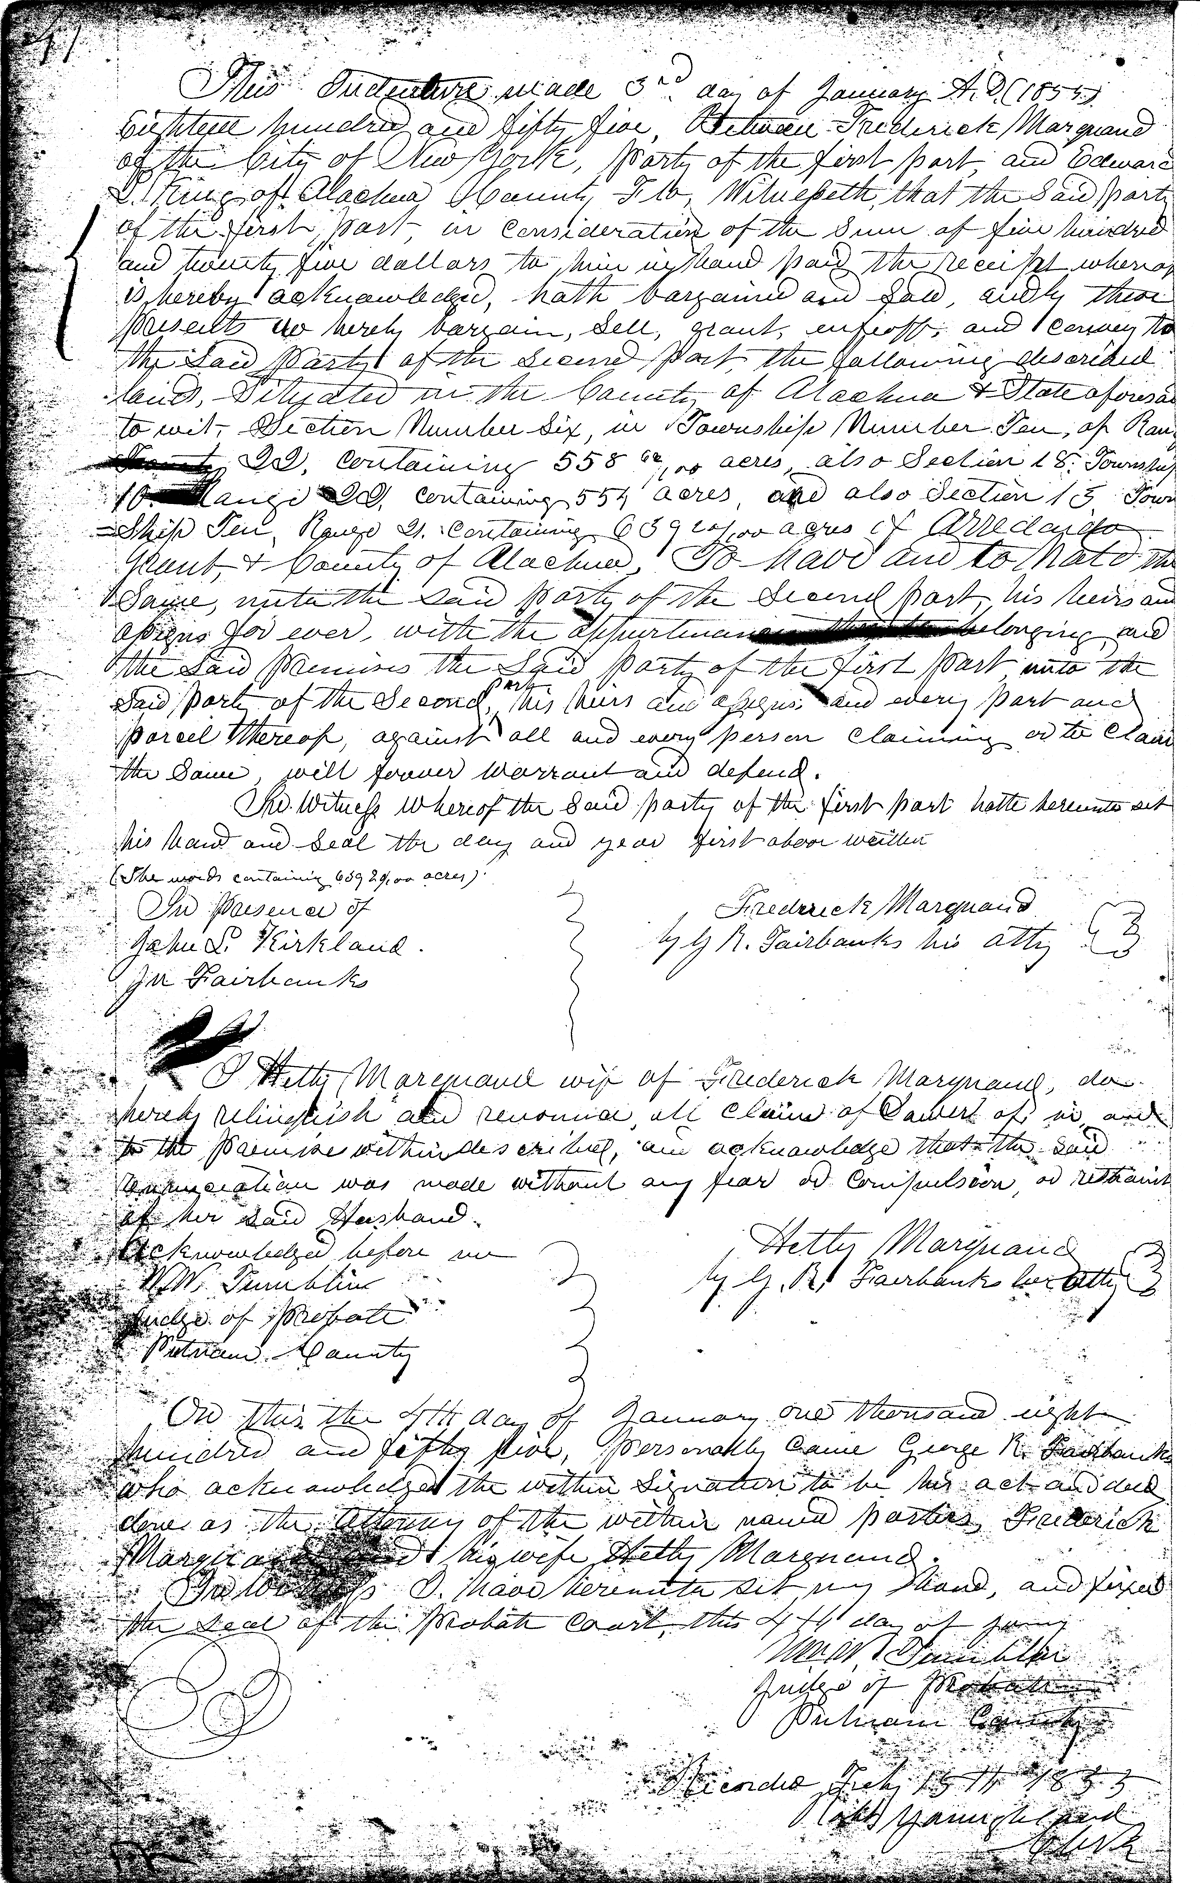 This Indenture made 3rd day of January A.D. (1855)
Eighteen hundred and fifty five, Between Frederick Marquand
of the City of New York, party of the first part, and Edward
King of Alachua County Fla, Witnesseth, that the Said party
of the first part, in consideration of the Sum of five hundred
and twenty five dollars to him in hand paid the receipt whereof
is hereby acknowledged, hath bargained and Sold, and by these
presents do hereby bargain, Sell, grant, enfeoff, and convey to
the Said party of the Second part, the following described
lands, Situated in the County of Alachua & State aforesaid
to wit, Section Number Six, in Township Number Ten, of Rang
22, containing 558 /100 acres, also Section 18, Township
10 Range 22, containing 554 acres, and also Section 13 Town
=Ship Ten, Range 21. containing 639 29/100 acres of Arredondo
Grant, & County of Alachua, To have and to hold the
Same, unto the said party of the Second part, his heirs and
assigns for ever, with the appurtenances belonging, and
the Said premises the Said party of the first part unto the
Said party of the Second part, his heirs and assigns and every part and
parcel thereof, against all and every person claiming or to claim
the Same, will forever warrant and defend.
In Witness Whereof the Said party of the first part hath hereunto set
his hand and Seal the day and year first above written
(The words containing 639 29/100 acres)
In presence of
John L. Kirkland.
Jn Fairbanks
Frederick Marquand
by G R. Fairbanks his atty
I Hetty Marquand wife of Frederick Marquand, do
hereby relinquish and renounce, all claim of Dower of, in, and
to the premises within described, and acknowledge that the Said
renunciation was made without any fear or Compulsion, or restraint
of her Said Husband.
Acknowledged before me
W.W. Tumblin
Judge of Probate
Putnam County
Hetty Marquand
by G. R. Fairbanks her atty
On this the 4th day of January one thousand eight
hundred and fifty five, personally came George R. Fairbanks
who acknowledged the within Signature to be his act and deed
done as the Attorney of the within named parties, Frederick
Marquand and his wife Hetty Marquand.
In Witness I have hereunto set my hand, and fixed
the seal of the Probate Court, this 4th day of Jany
Wm W. Tumblin
Judge of Probate
Putnam County
Recorded Feby 15th 1855
Clerk